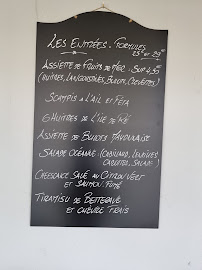 LES ENTRÉES - FORMULES
25€ et 29€
ASSIETTE DE FRUITS DE MER - SUP 4,5€
(HUÎTRES, LANGOUSTINES, BULOTS, CREVETTES)
SCAMPIS A L'AIL et FETA
6 HUITRES DE L'ILE DE RÉ
ASSIETTE DE BULOTS MAYONNAISE
SALADE OCÉANE - (CABILLAUD,
CAROTTES, SALADE)
CHEESCAKE SALÉ AU CITRON VERT
et SAUMON FUMÉ
TIRAMISU DE BETTERAVE
et CHÈVRE FRAIS